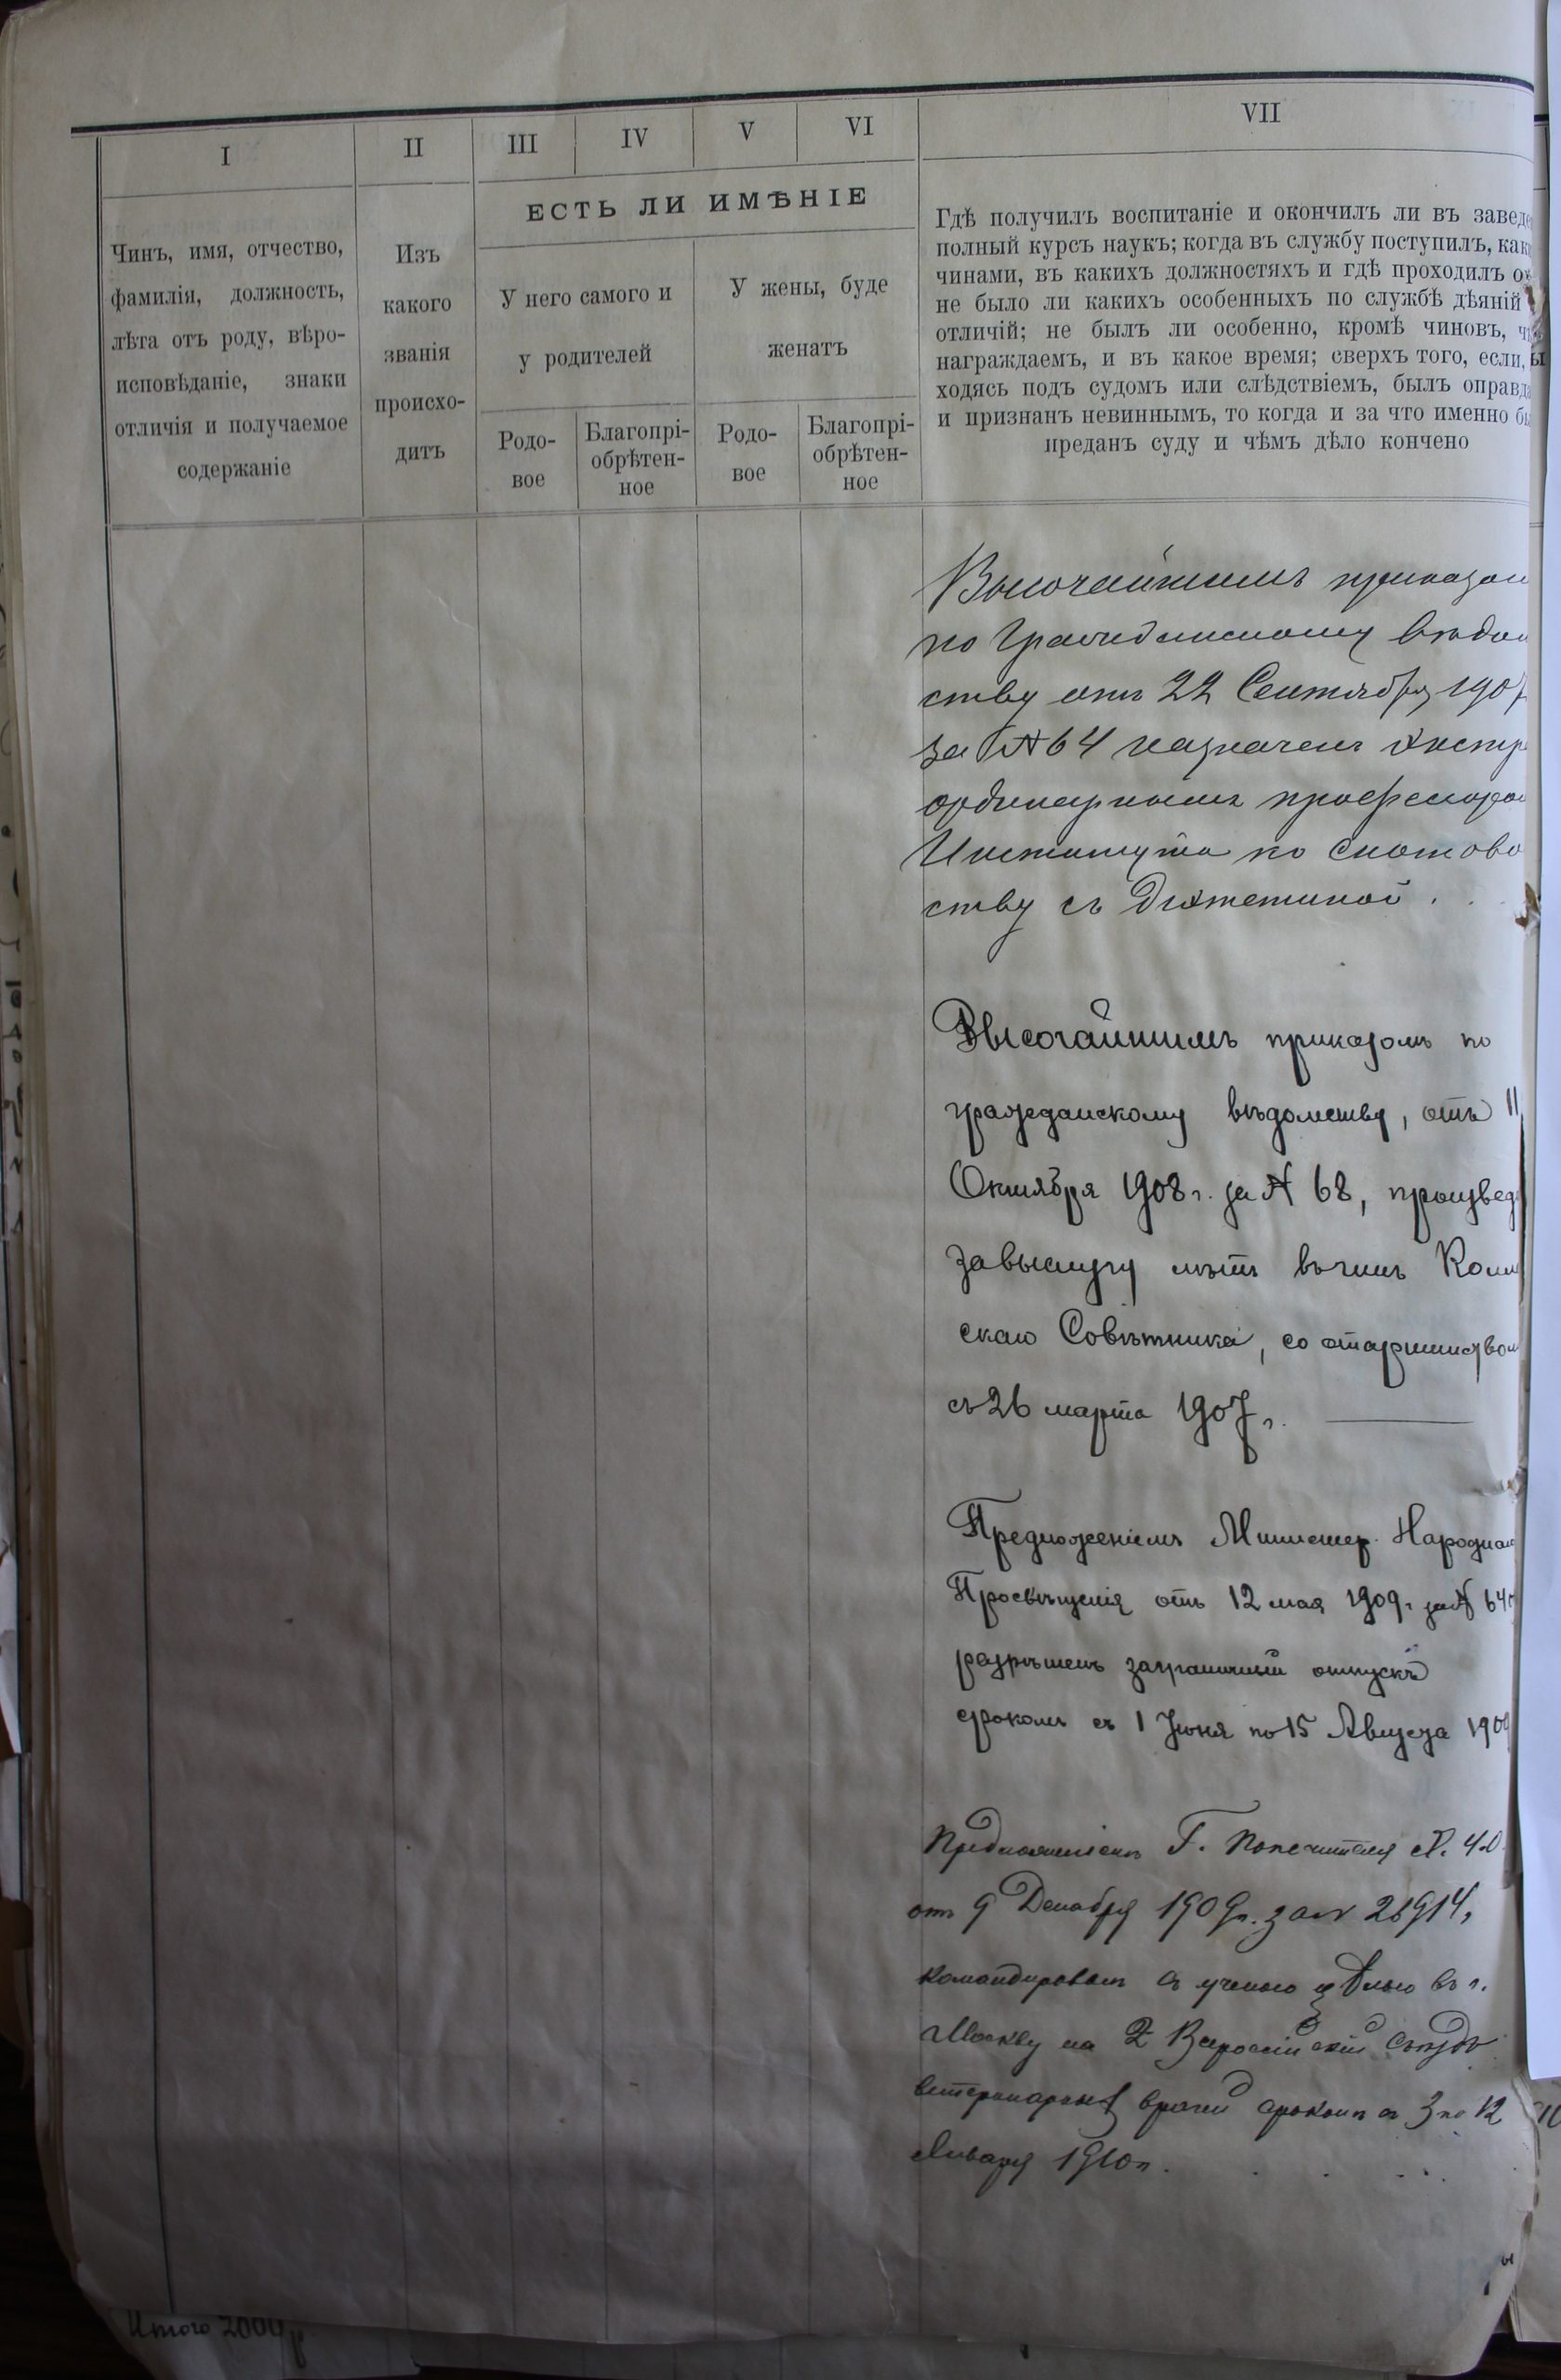 I
II
III
IV
V
VI
VII
Чинъ, имя, отчество,
фамилія, должность,
лѣта отъ роду, вѣро-
исповѣданіе, знаки
отличія и получаемое
содержаніе
Изъ
какого
званія
происхо-
дитъ
ЕСТЬ ЛИ ИМѢНІЕ
У него самого и
у родителей
У жены, буде
женатъ
Родо-
вое
Благопрі-
обрѣтен-
ное
Родо-
вое
Благопрі-
обрѣтен-
ное
Гдѣ получилъ воспитаніе и окончилъ ли въ завед
полный курсъ наукъ; когда въ службу поступилъ, как
чинами, въ какихъ должностяхъ и гдѣ проходилъ о
не было ли какихъ особенныхъ по службѣ дѣяній
отличій; не былъ ли особенно, кромѣ чиновъ, ч
награждаемъ, и въ какое время; сверхъ того, если,
ходясь подъ судомъ или слѣдствіемъ, былъ оправд
и признанъ невиннымъ, то когда и за что именно б
преданъ суду и чѣмъ дѣло кончено
Высочайшимъ приказом
по Гражданскому вѣдом
ству отъ 22 Сентября 190
за № 64 назначенъ экстр
ординарнымъ профессоро
Института по скотово
ству съ Діэтетикой.
Высочайшимъ приказомъ по
гражданскому вѣдомству, отъ 11
Октября 1908 г. за № 68, произвед
за выслугу лѣтъ въ чинъ Колл
скаго Совѣтника, со старшинством
съ 26 марта 1907 г.
Предложеніемъ Министер. Народнаг
Просвѣщенія отъ 12 мая 1909 г. за № 64
разрѣшенъ заграничный отпускъ
срокомъ съ 1 Іюня по 15 Августа 1909
Предложеніемъ Г. Попечителя
отъ 9 Декабря 1909 г. за № 26914,
командированъ съ ученою цѣлью въ г.
Москву на 2 Всероссійскій съѣздъ
ветеринарныхъ врачей срокомъ съ 3 по 12
Января 1910 г.
Итого 2000 р